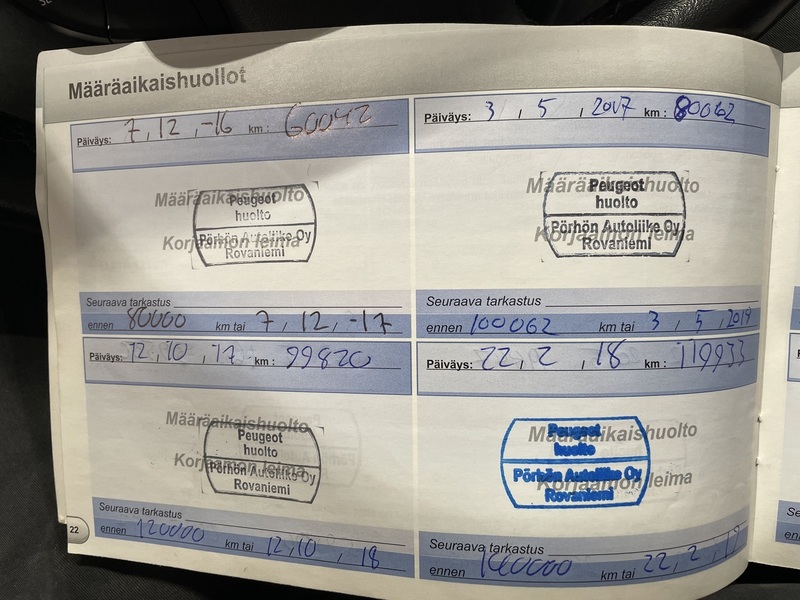 Määräaikaishuollot
Päiväys: 7, 12, -16 km: 60042
Määräaikaishuolto
Korjaamon leima
Peugeot
huolto
Pörhön Autoliike Oy
Rovaniemi
Seuraava tarkastus
ennen 80000 km tai 7, 12, -17
Päiväys: 3, 5, 2017 km: 80062
Määräaikaishuolto
Korjaamon leima
Peugeot
huolto
Pörhön Autoliike Oy
Rovaniemi
Seuraava tarkastus
ennen 100062 km tai 3, 5, 2019
Päiväys: 12, 10, 17 km: 99820
Määräaikaishuolto
Korjaamon leima
Peugeot
huolto
Pörhön Autoliike Oy
Rovaniemi
Seuraava tarkastus
ennen 120000 km tai 12, 10, 18
Päiväys: 22, 2, 18 km: 119933
Määräaikaishuolto
Korjaamon leima
Peugeot
huolto
Pörhön Autoliike Oy
Rovaniemi
Seuraava tarkastus
ennen 140000 km tai 22, 2, 19
22